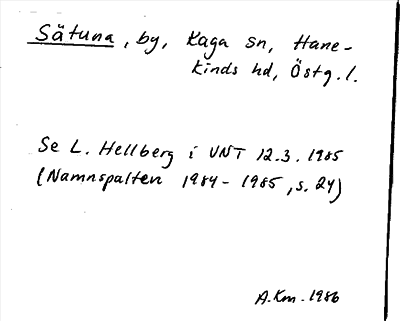 Sätuna, by, Kaga sn, Hane-
kinds hd, Östg. l.
Se L. Hellberg i UNT 12.3.1985
(Namnspalten 1984-1985, s. 24)
A.Km. 1986